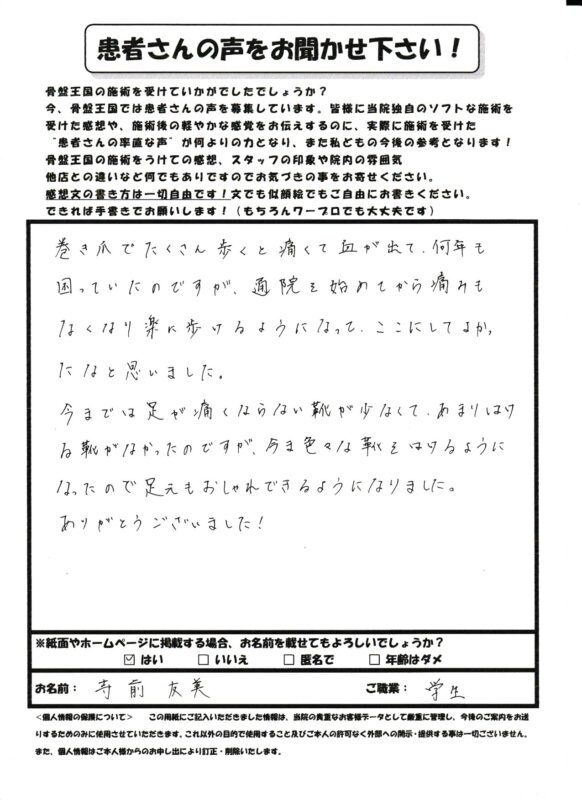 患者さんの声をお聞かせ下さい！
骨盤王国の施術を受けていかがでしたでしょうか？
今、骨盤王国では患者さんの声を募集しています。皆様に当院独自のソフトな施術を
受けた感想や、施術後の軽やかな感覚をお伝えするのに、実際に施術を受けた
"患者さんの率直な声"が何よりの力となり、また私どもの今後の参考となります！
骨盤王国の施術をうけての感想、スタッフの印象や院内の雰囲気
他店との違いなど何でもありですのでお気づきの事をお寄せください。
感想文の書き方は一切自由です！文でも似顔絵でもご自由にお書きください。
できれば手書きでお願いします！（もちろんワープロでも大丈夫です）
巻き爪でたくさん歩くと痛くて血が出て、何年も
困っていたのですが、通院を始めてから痛みも
なくなり楽に歩けるようになって、ここにしてよかっ
たなと思いました。
今までは足が痛くならない靴が少なくて、あまりはけ
る靴がなかったのですが、今ま色々な靴をはけるように
なったので足元もおしゃれできるようになりました。
ありがとうございました！
※紙面やホームページに掲載する場合、お名前を載せてもよろしいでしょうか？
☑ はい □ いいえ □ 匿名で □ 年齢はダメ
お名前： 寺前 友美 ご職業： 学生
＜個人情報の保護について＞ この用紙にご記入いただきました情報は、当院の貴重なお客様データとして厳重に管理し、今後のご案内をお送
りするためのみに使用させていただきます。これ以外の目的で使用すること及びご本人の許可なく外部への開示・提供する事は一切ございません。
また、個人情報はご本人様からのお申し出により訂正・削除いたします。